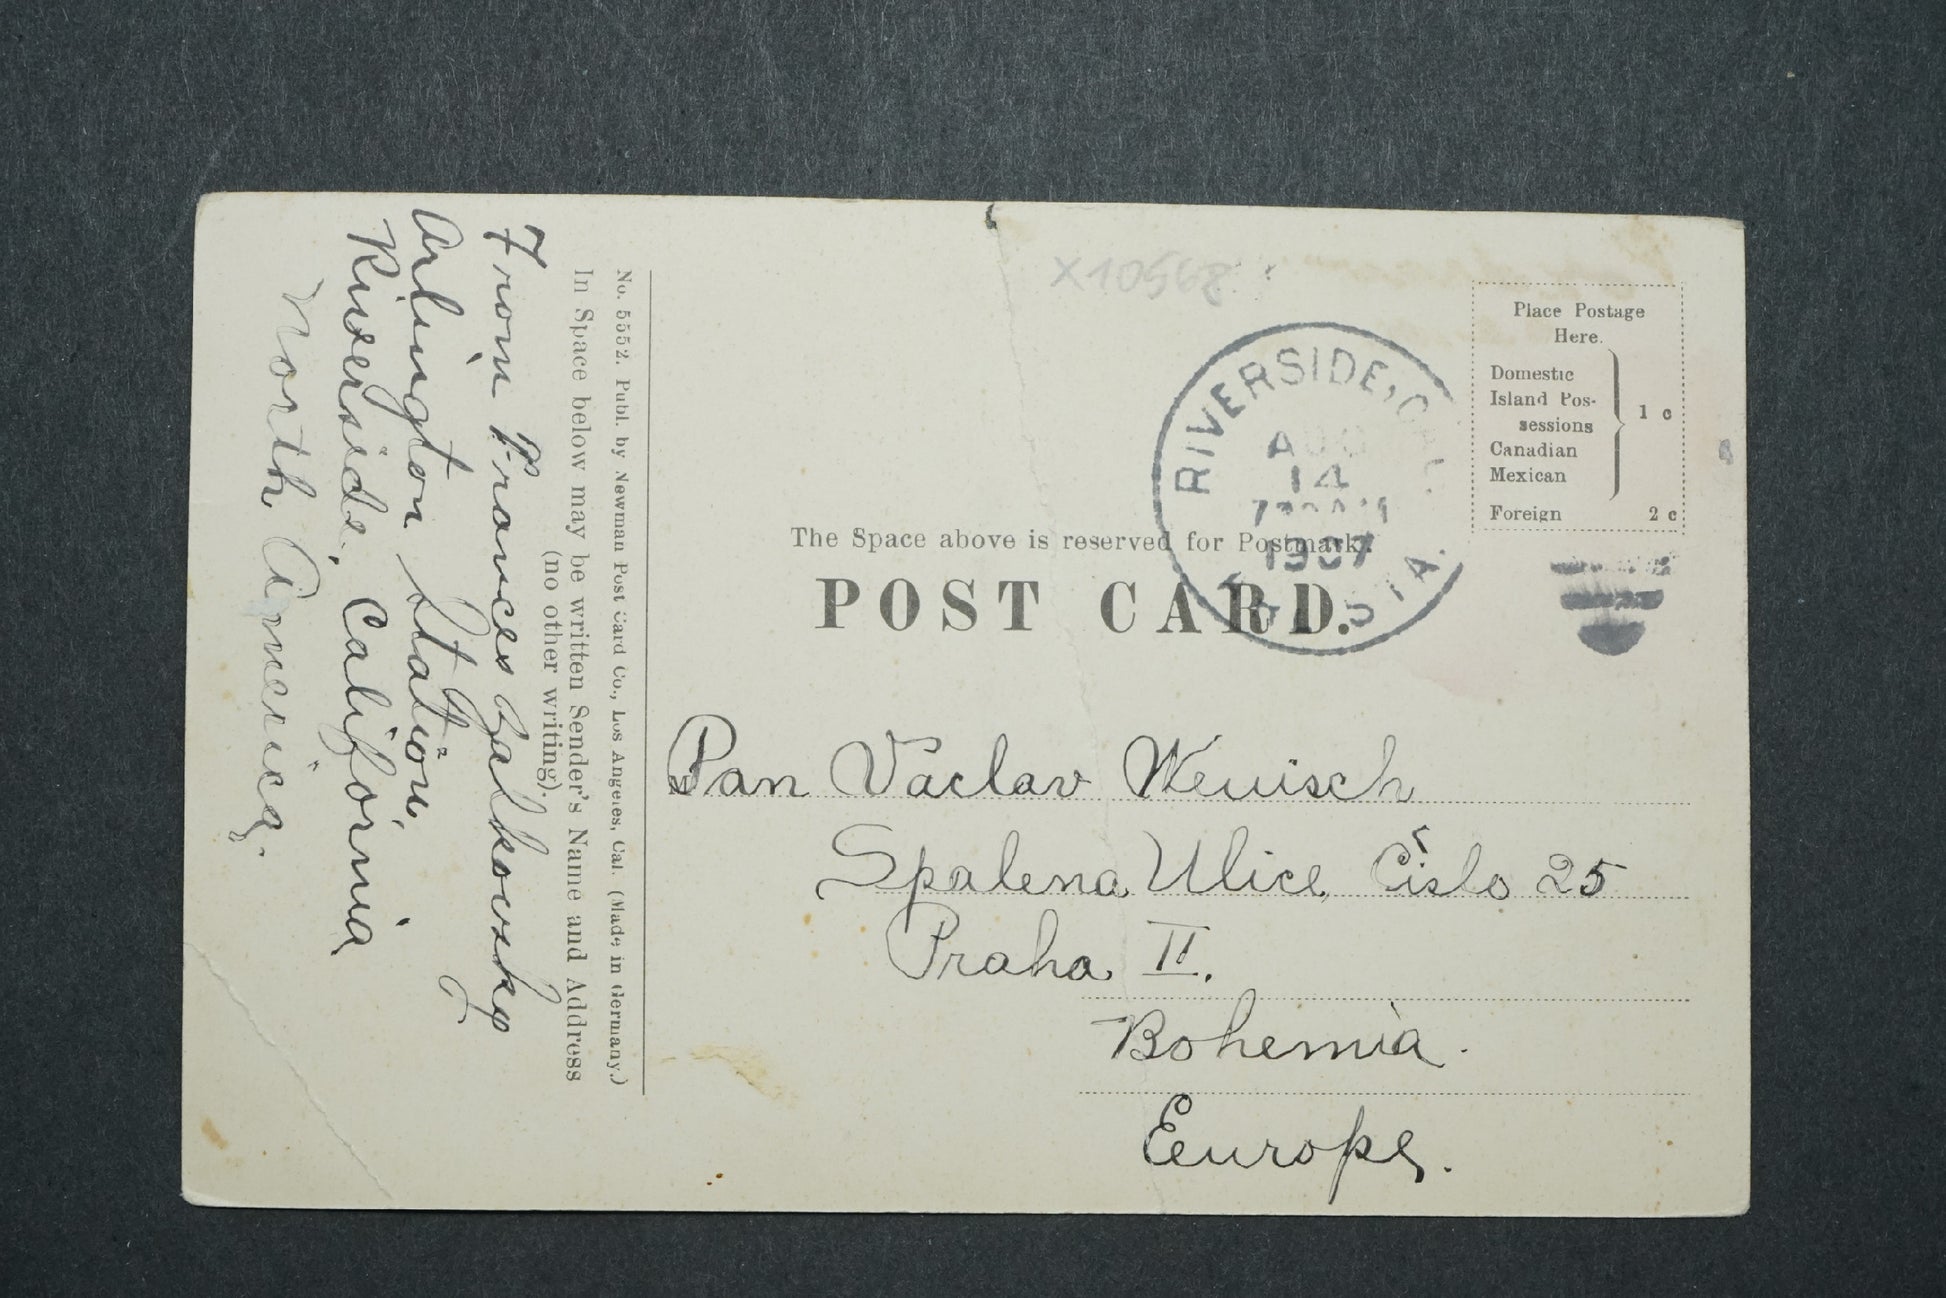 X10568
Place Postage
Here.
Domestic
Island Pos-
sessions
Canadian
Mexican
1 c
Foreign 2 c
RIVERSIDE, CAL.
AUG
14
1907
STA.
The Space above is reserved for Postmark.
POST CARD.
Pan Václav Wenisch
Spalena Ulice Čislo 25
Praha II.
Bohemia.
Europe.
No. 5552. Publ. by Newman Post Card Co., Los Angeles, Cal. (Made in Germany.)
In Space below may be written Sender's Name and Address
(no other writing).
From Frances Zalkovsky
Arlington Station,
Riverside, California
North America.